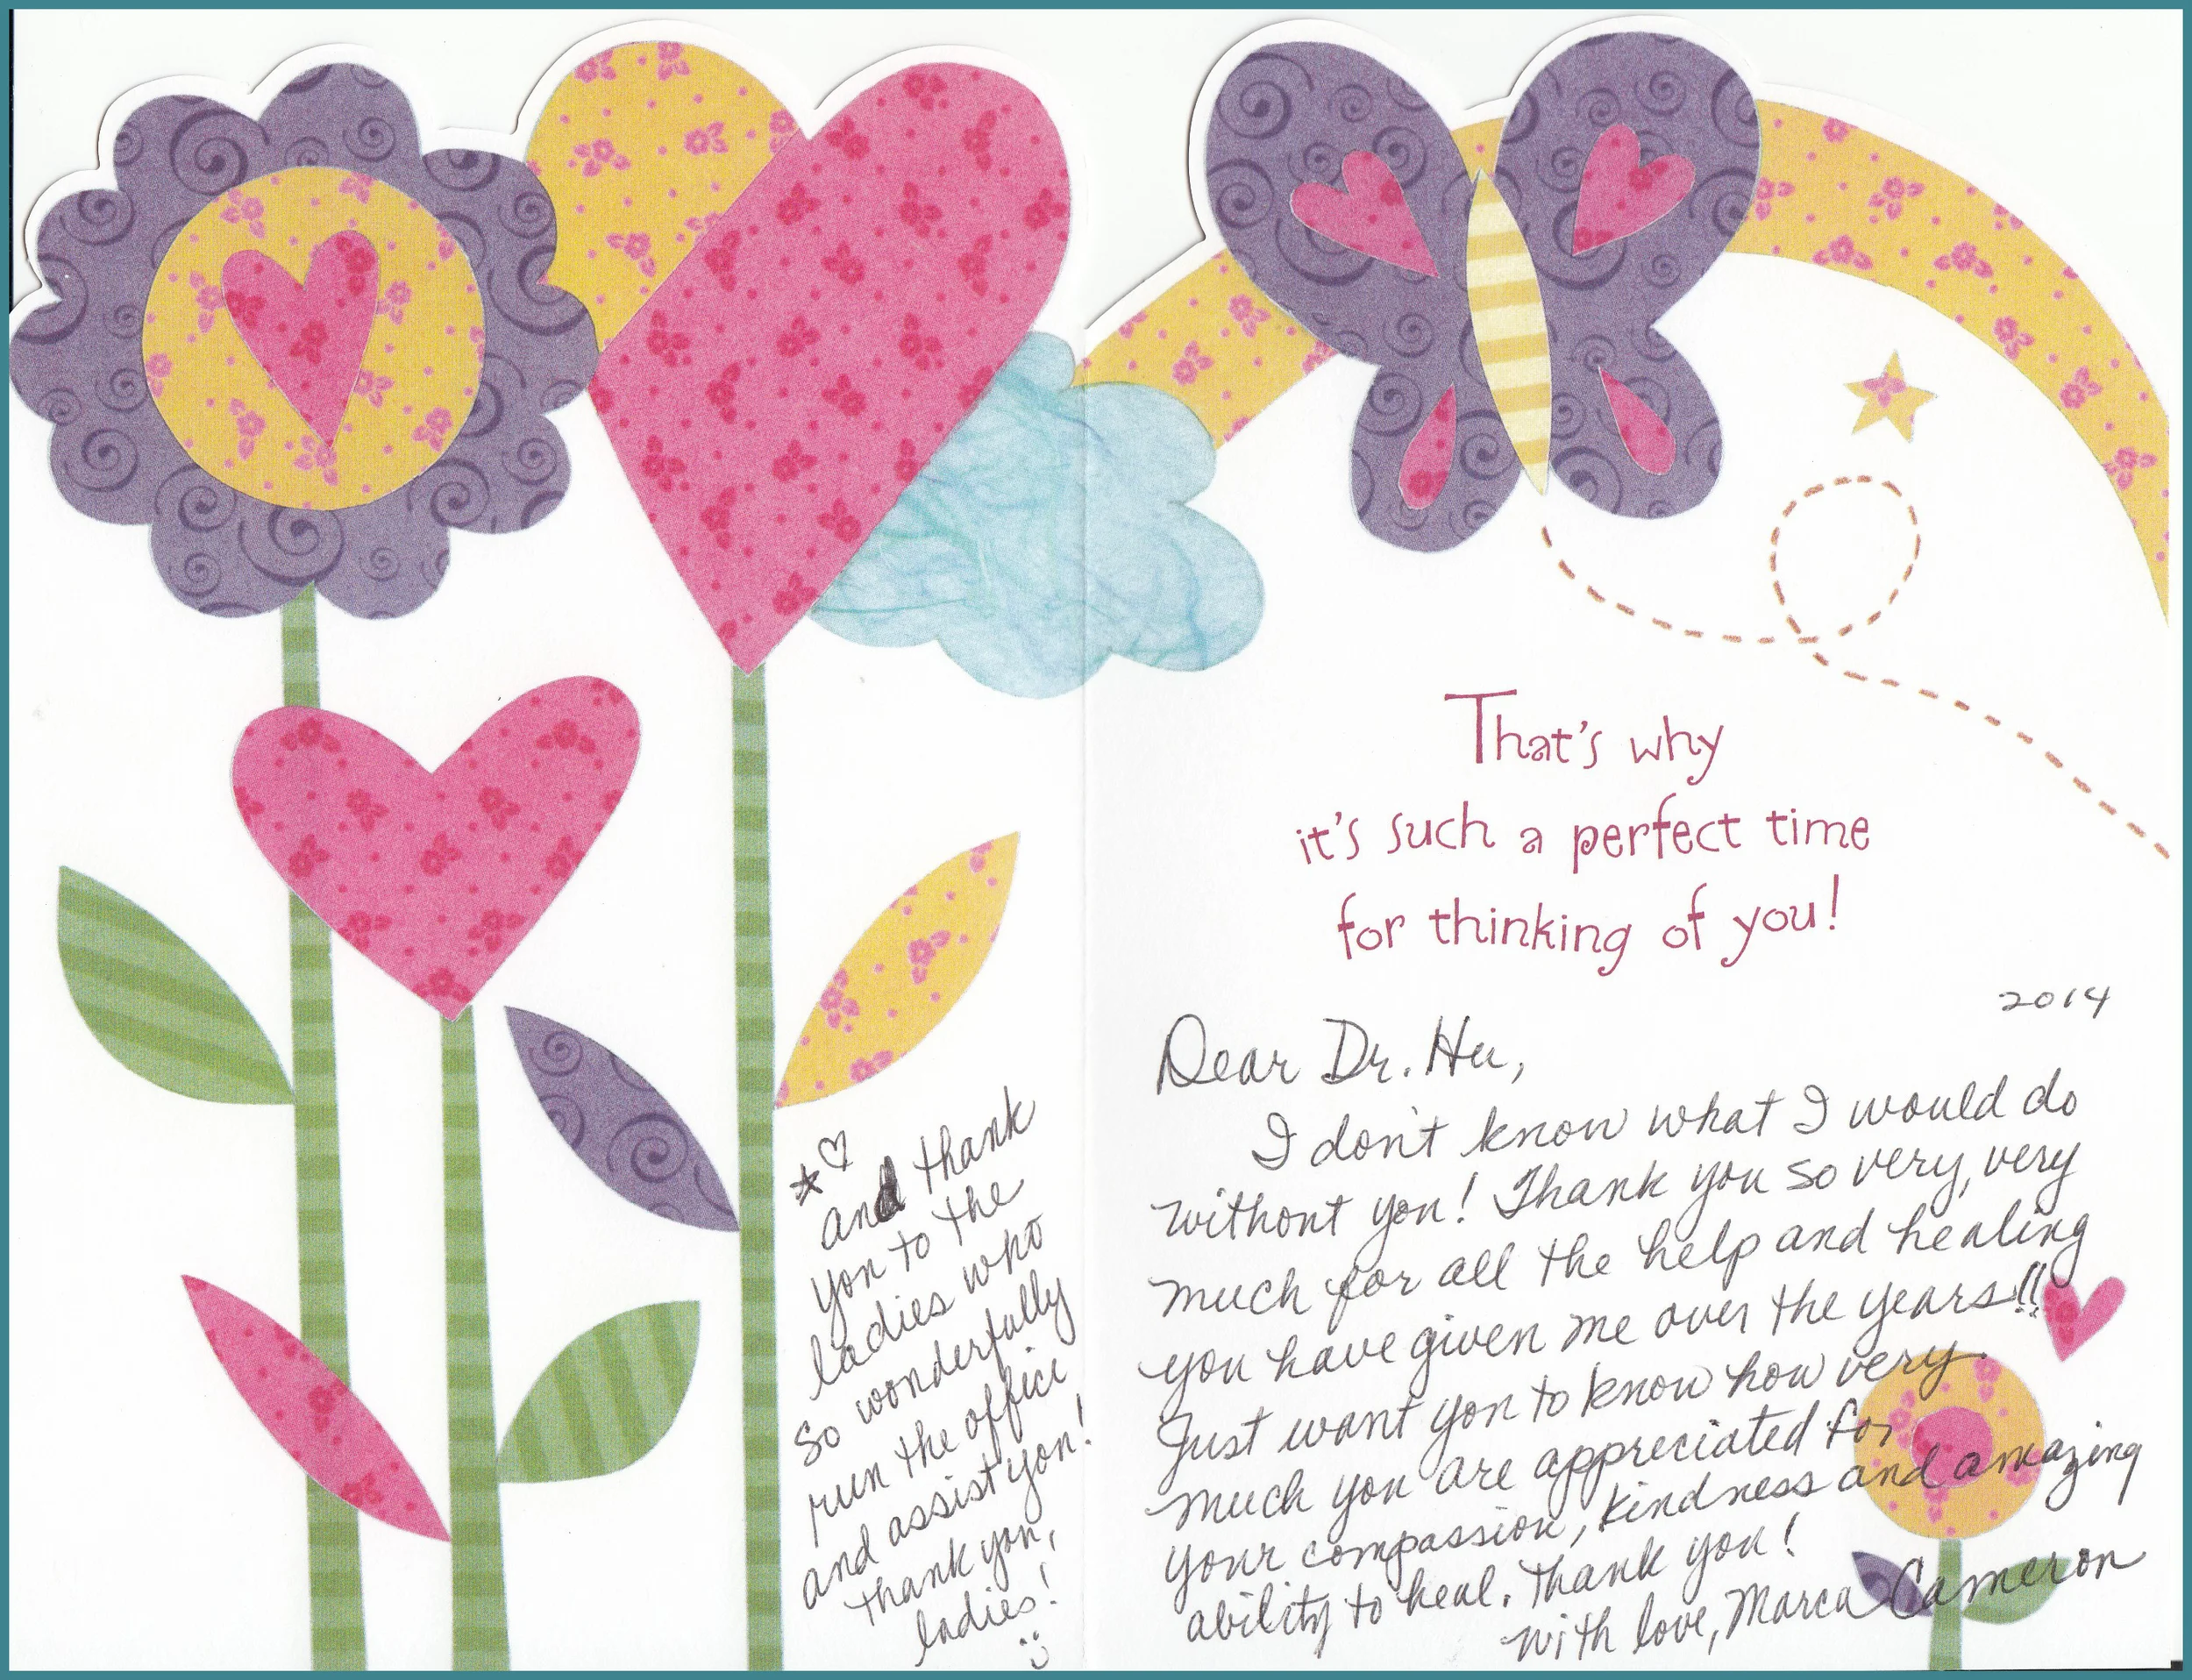 That's why
it's such a perfect time
for thinking of you!
2014
Dear Dr. Hu,
I don't know what I would do
without you! Thank you so very, very
much for all the help and healing
you have given me over the years!!
Just want you to know how very
much you are appreciated for
your compassion, kindness and amazing
ability to heal. Thank you!
With love, Marca Cameron
and thank
you to the
ladies who
so wonderfully
run the office
and assist you!
Thank you,
ladies!